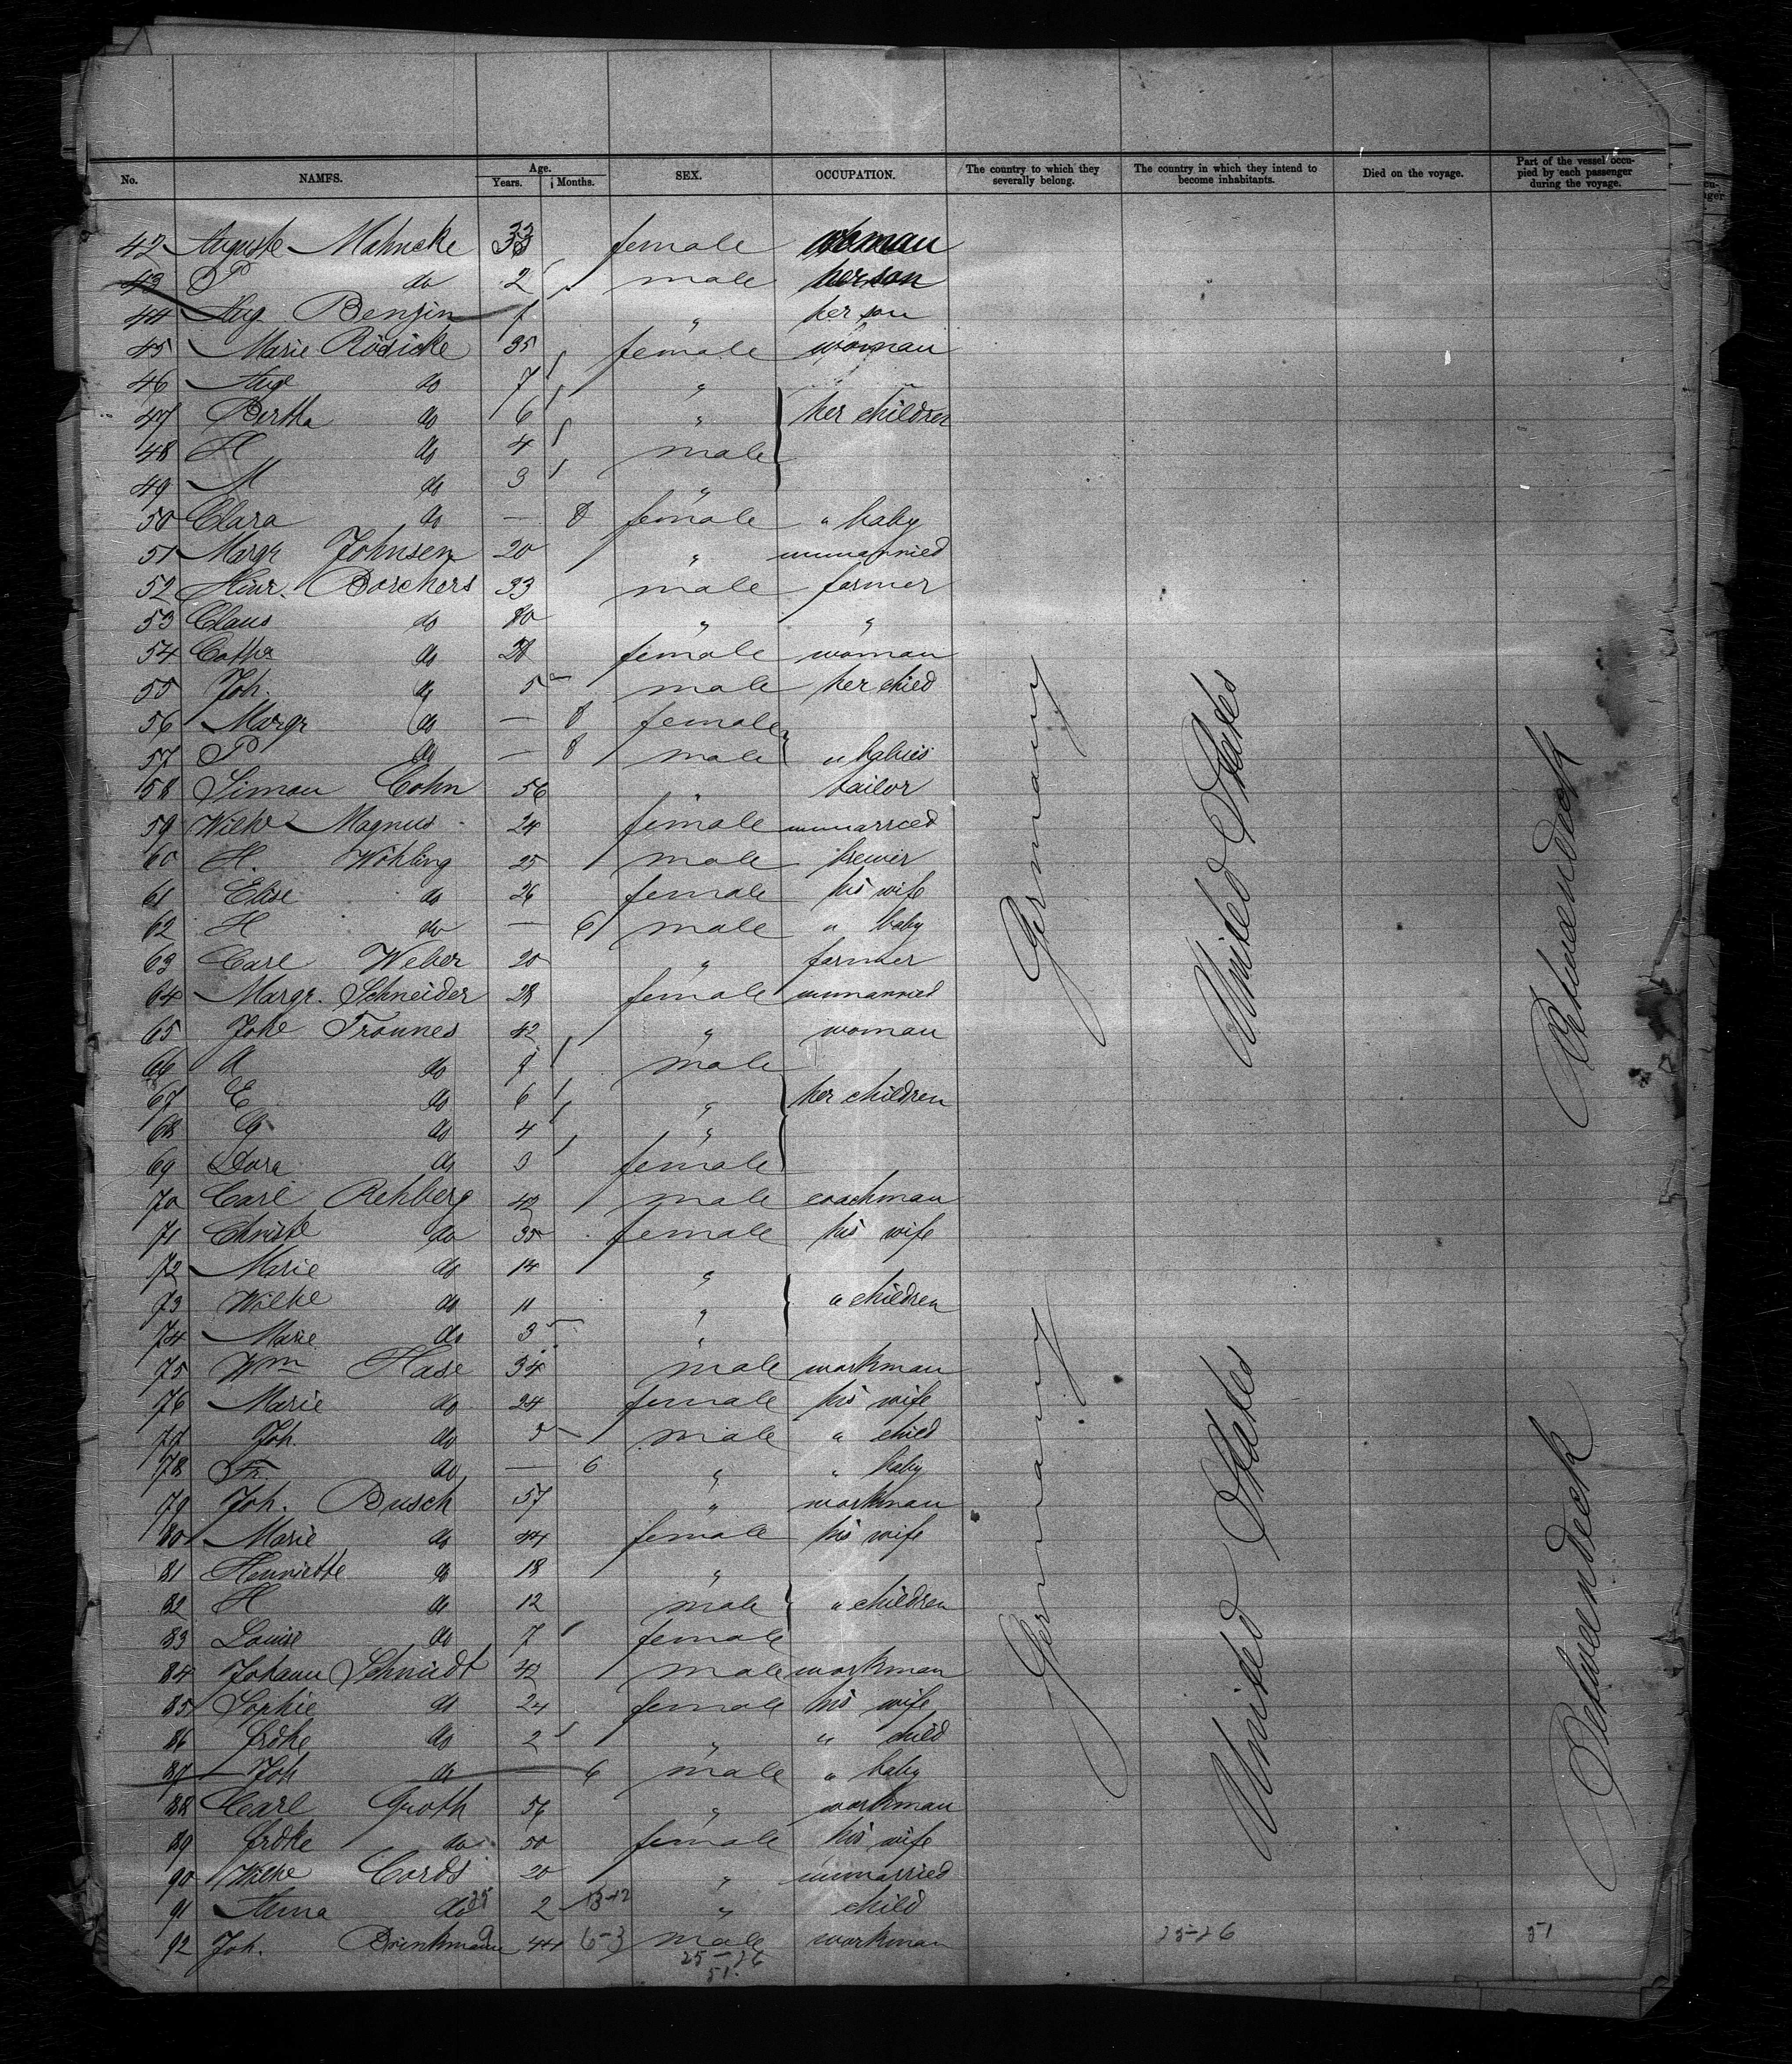 No. NAMES. Age. Years. Months. SEX. OCCUPATION. The country to which they severally belong. The country in which they intend to become inhabitants. Died on the voyage. Part of the vessel occupied by each passenger during the voyage.
42 Auguste Mahncke 33 female woman
43 P do 2 male her son
44 Aug Benjin 7 " her son
45 Marie Rödicke 35 female woman
46 Aug do 7 "
47 Bertha do 6 " her children
48 H do 4 male
49 M do 3 "
50 Clara do — 8 female " baby
51 Margr Johnsen 20 " unmarried
52 Hinr. Borchers 33 male farmer
53 Claus do 80 " "
54 Cathe do 28 female woman
55 Joh. do 5 male her child
56 Margr do — 8 female
57 P do — 8 male " babies
58 Simon Cohn 56 " tailor
59 Wilhe Magnus 24 female unmarried
60 H. Wöhling 25 male brewer
61 Elise do 26 female his wife
62 H do — 6 male " baby
63 Carl Weber 20 " farmer
64 Margr. Schneider 28 female unmarried
65 Johe Trounes 42 " woman
66 A do 9 male
67 E do 6 " her children
68 G do 4 "
69 Dora do 3 female
70 Carl Rehberg 42 male coachman
71 Christe do 35 female his wife
72 Marie do 14 "
73 Wilhe do 11 " " children
74 Marie do 3 "
75 Wm Hase 34 male workman
76 Marie do 24 female his wife
77 Joh. do 3 male " child
78 Fr. do — 6 " " baby
79 Joh. Busch 57 " workman
80 Marie do 44 female his wife
81 Henriette do 18 "
82 H do 12 male " children
83 Louise do 7 female
84 Johann Schmidt 42 male workman
85 Sophie do 24 female his wife
86 Frdke do 2 " " child
87 Joh do 6 male " baby
88 Carl Groth 56 " workman
89 Frdke do 50 female his wife
90 Wilhe Cords 20 " unmarried
91 Anna do 25 2 13-12 " child
92 Joh. Brinkmann 44 6-3 male workman 25-26 51
25-26
51.
Germany
United States
Betweendeck
Germany
United States
Betweendeck